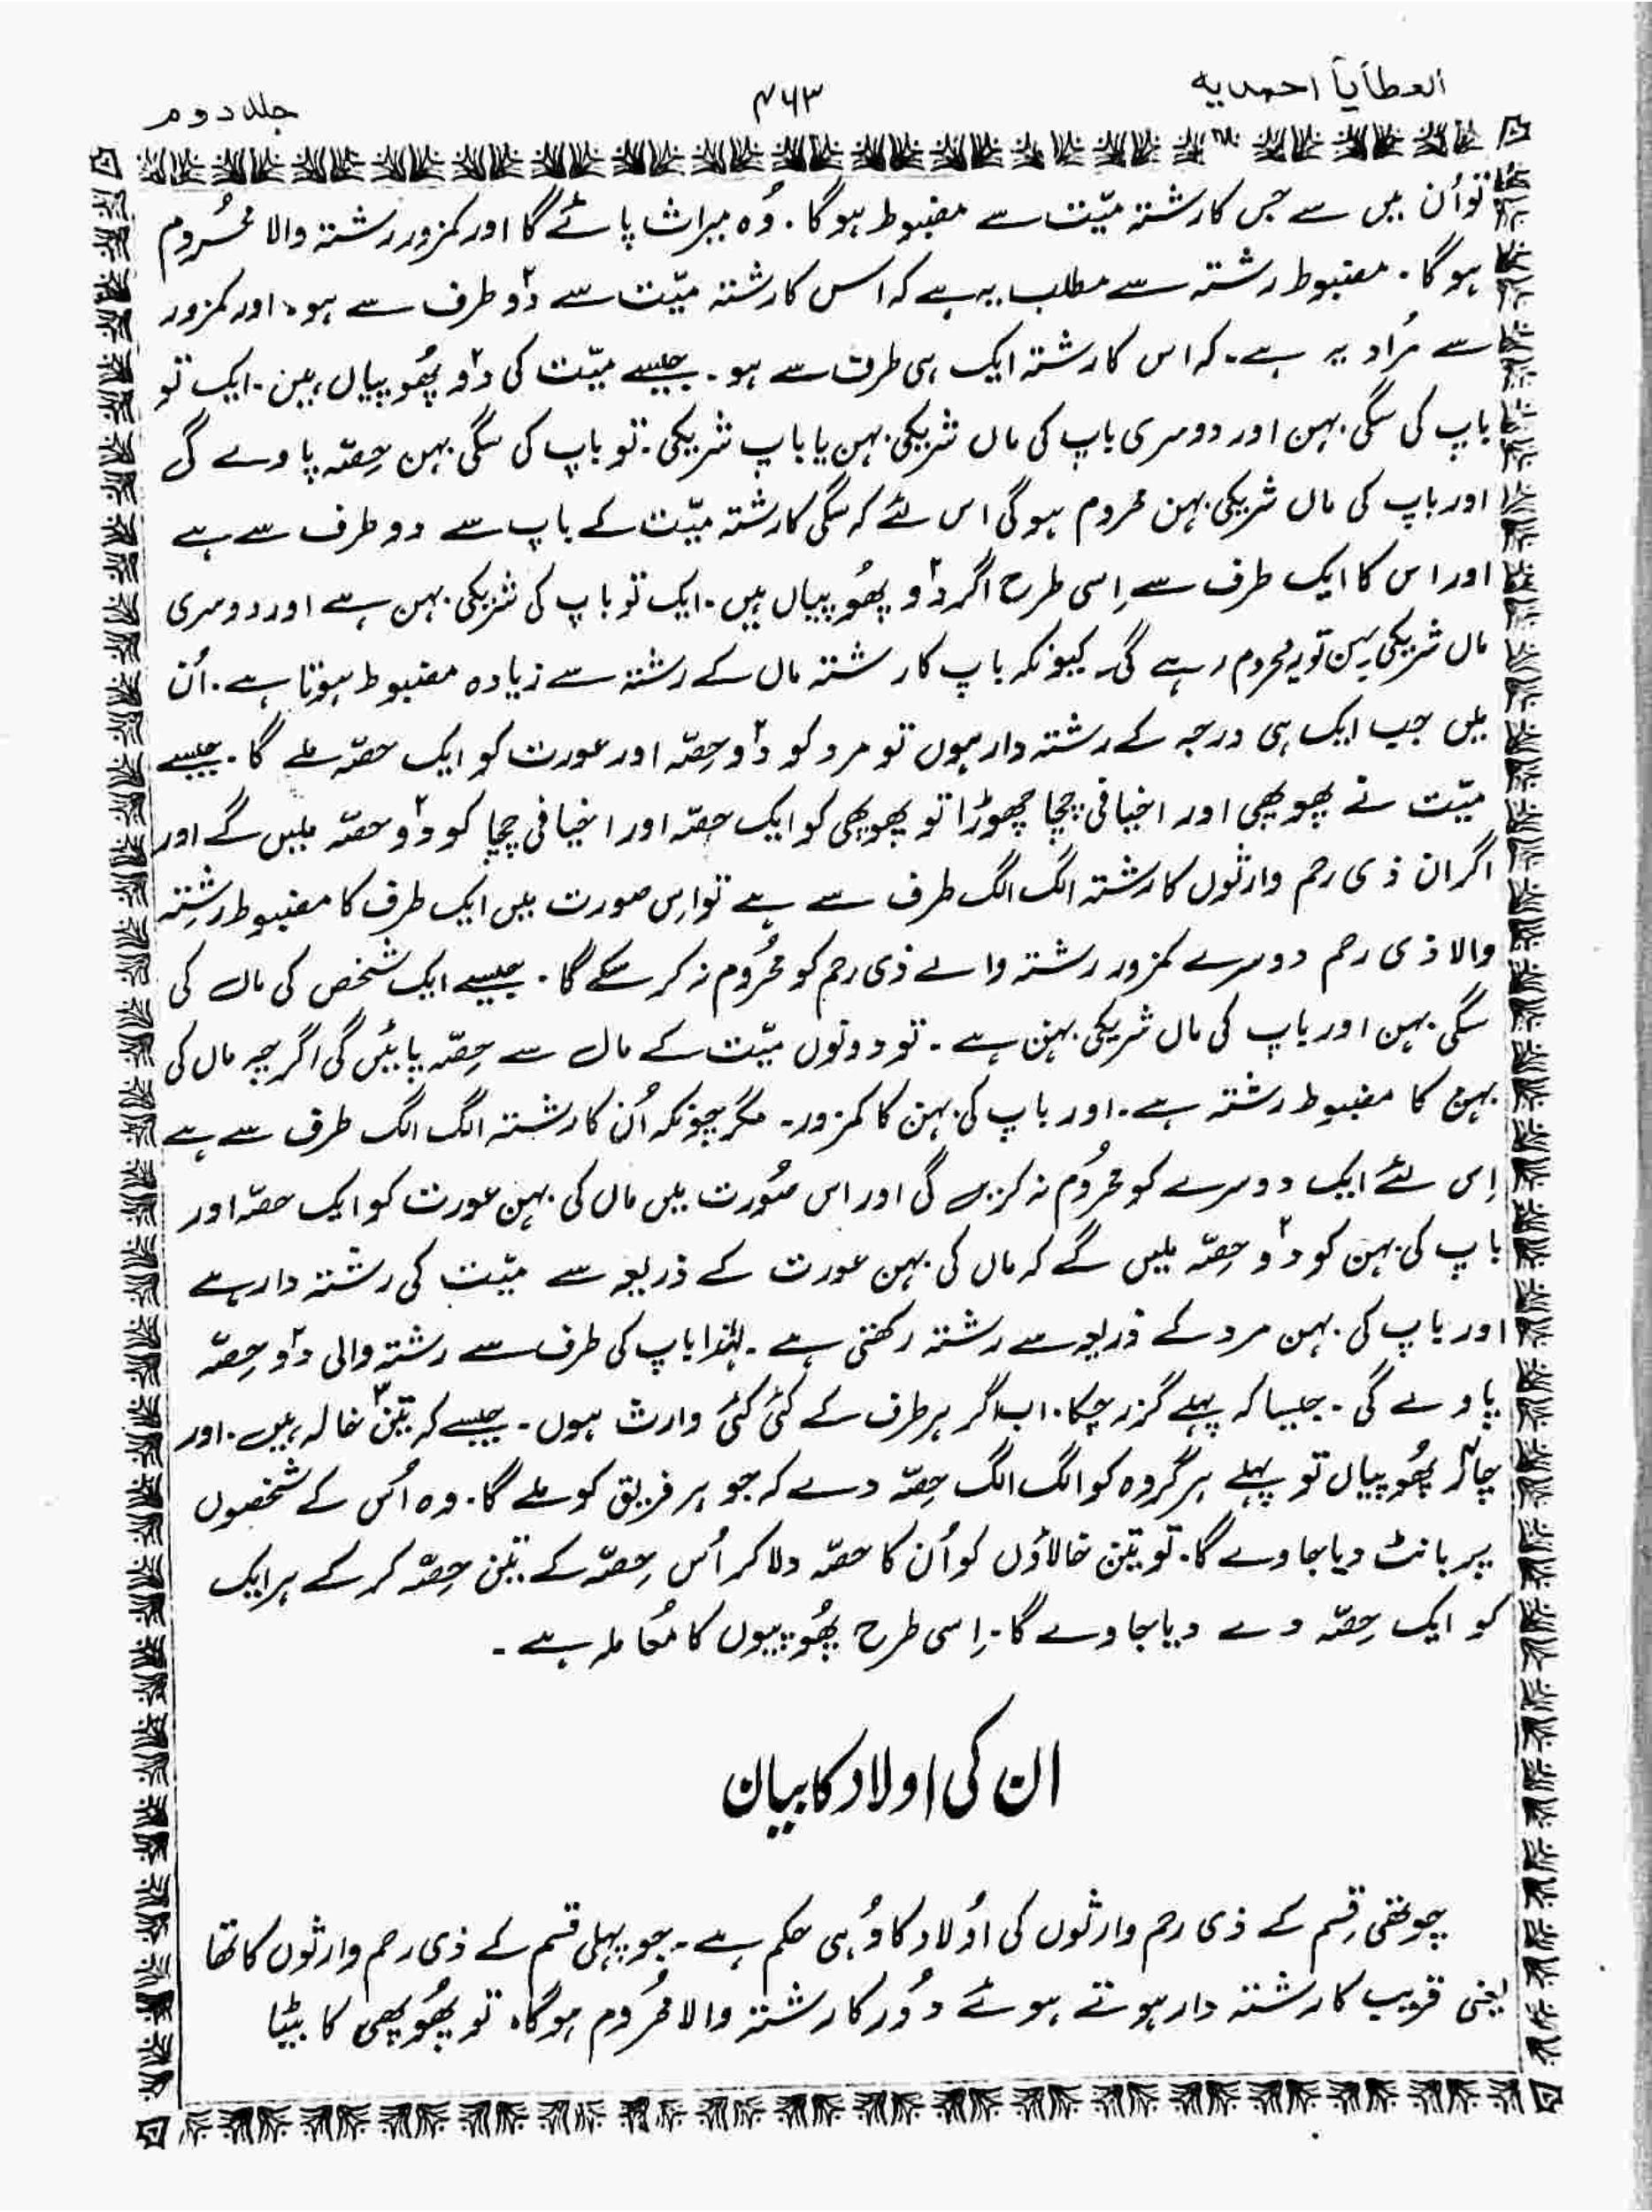 العطایا احمدیہ
۴۶۳
جلد دوم
تو اُن میں سے جس کا رشتہ میّت سے مضبوط ہوگا۔ وُہ میراث پائے گا اور کمزور رشتہ والا محُروم
ہو گا۔ مضبوط رشتہ سے مطلب یہ ہے کہ اس کا رشتہ میّت سے دو۲ طرف سے ہو، اور کمزور
سے مُراد یہ ہے۔ کہ اس کا رشتہ ایک ہی طرف سے ہو۔ جیسے میّت کی دو۲ پھُوپیاں ہیں۔ ایک تو
باپ کی سگی بہن اور دوسری باپ کی ماں شریکی بہن یا باپ شریکی۔ تو باپ کی سگی بہن حِصّہ پاوے گی
اور باپ کی ماں شریکی بہن محروم ہو گی اس لئے کہ سگی کا رشتہ میّت کے باپ سے دو طرف سے ہے
اور اس کا ایک طرف سے اِسی طرح اگر دو۲ پھُوپیاں ہیں۔ ایک تو باپ کی شریکی بہن ہے اور دوسری
ماں شریکی بہن تو یہ محروم رہے گی۔ کیونکہ باپ کا رشتہ ماں کے رشتہ سے زیادہ مضبوط ہوتا ہے۔ اُن
میں جب ایک ہی درجہ کے رشتہ دار ہوں تو مرد کو دو۲ حِصّہ اور عورت کو ایک حصّہ ملے گا۔ جیسے
میّت نے پھوپھی اور اخیافی چچا چھوڑا تو پھوپھی کو ایک حصّہ اور اخیافی چچا کو دو۲ حصّہ ملیں گے اور
اگر ان ذی رحم وارثوں کا رشتہ الگ الگ طرف سے ہے تو اِس صورت میں ایک طرف کا مضبوط رشِتہ
والا ذی رحم دوسرے کمزور رشتہ والے ذی رحم کو محُروم نہ کر سکے گا۔ جیسے ایک شخص کی ماں کی
سگی بہن اور باپ کی ماں شریکی بہن ہے۔ تو دونوں میّت کے مال سے حِصّہ پائیں گی اگرچہ ماں کی
بہن کا مضبوط رشتہ ہے۔ اور باپ کی بہن کا کمزور۔ مگر چونکہ اُن کا رشتہ الگ الگ طرف سے ہے
اِس لئے ایک دوسرے کو محُروم نہ کریں گی اور اس صُورت میں ماں کی بہن عورت کو ایک حصّہ اور
باپ کی بہن کو دو۲ حِصّہ ملیں گے کہ ماں کی بہن عورت کے ذریعہ سے میّت کی رشتہ دار ہے
اور باپ کی بہن مرد کے ذریعہ سے رشتہ رکھتی ہے۔ لہٰذا باپ کی طرف سے رشتہ والی دو۲ حِصّہ
پاوے گی۔ جیسا کہ پہلے گزر چکا۔ اب اگر ہر طرف کے کئی کئی وارث ہوں۔ جیسے کہ تین۳ خالہ ہیں۔ اور
چار۴ پھُوپیاں تو پہلے ہر گروہ کو الگ الگ حِصّہ دے کہ جو ہر فریق کو ملے گا۔ وہ اُس کے شخصوں
پر بانٹ دیا جاوے گا۔ تو تین خالاؤں کو اُن کا حصّہ دلا کر اُس حِصّہ کے تین حِصّہ کر کے ہر ایک
کو ایک حِصّہ دے دیا جاوے گا۔ اِسی طرح پھُوپیوں کا مُعاملہ ہے۔
ان کی اولاد کا بیان
چوتھی قِسم کے ذی رحم وارثوں کی اُولاد کا وُہی حکم ہے۔ جو پہلی قسم کے ذی رحم وارثوں کا تھا
یعنی قریب کا رشتہ دار ہوتے ہوئے دُور کا رشتہ والا محُروم ہوگا، تو پھُوپھی کا بیٹا